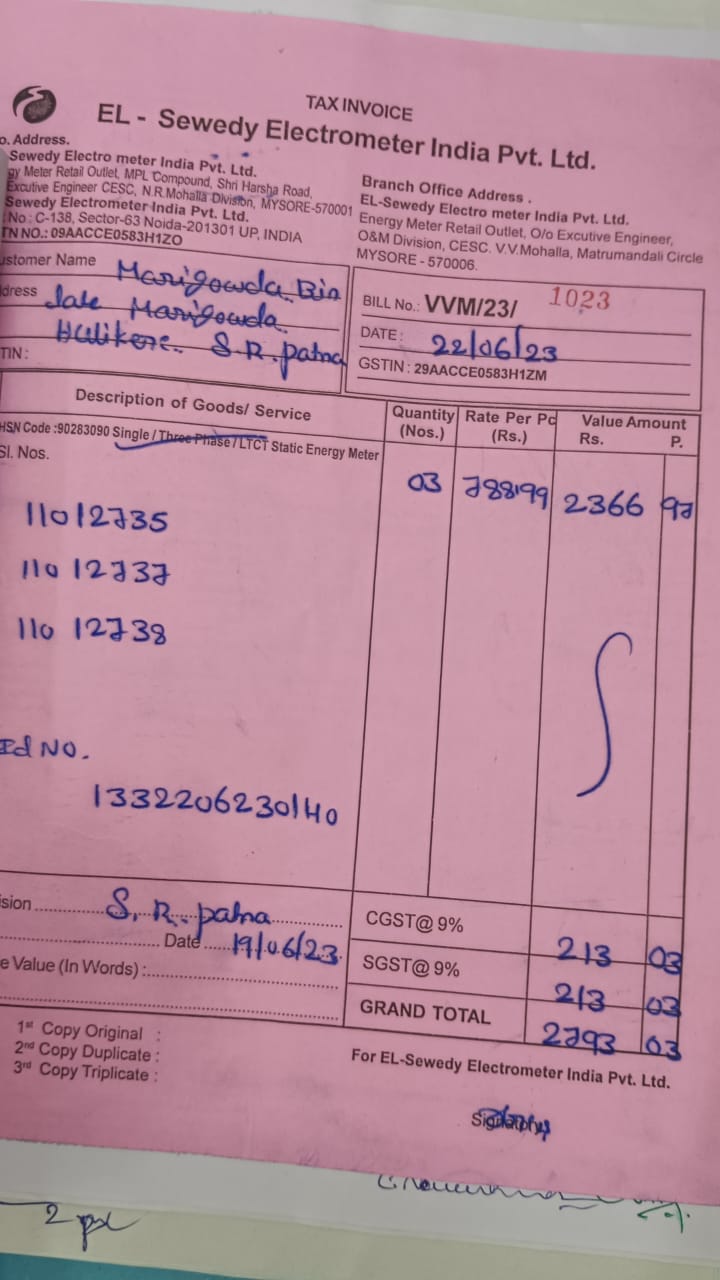 TAX INVOICE
EL - Sewedy Electrometer India Pvt. Ltd.
o. Address.
Sewedy Electro meter India Pvt. Ltd.
gy Meter Retail Outlet, MPL Compound, Shri Harsha Road,
Excutive Engineer CESC, N.R.Mohalla Division, MYSORE-570001
Sewedy Electrometer India Pvt. Ltd.
No : C-138, Sector-63 Noida-201301 UP, INDIA
TN NO.: 09AACCE0583H1ZO
Branch Office Address .
EL-Sewedy Electro meter India Pvt. Ltd.
Energy Meter Retail Outlet, O/o Excutive Engineer,
O&M Division, CESC. V.V.Mohalla, Matrumandali Circle
MYSORE - 570006.
ustomer Name Marigowda Bin
dress late Marigowda
Halikere. S.R. patna
TIN :
BILL No.: VVM/23/ 1023
DATE : 22/06/23
GSTIN : 29AACCE0583H1ZM
Description of Goods/ Service Quantity (Nos.) Rate Per Pc (Rs.) Value Amount Rs. P.
HSN Code :90283090 Single / Three Phase / LTCT Static Energy Meter
Sl. Nos.
03 788.99 2366 97
11012735
11012737
11012738
Id No.
1332206230140
ision S. R. patna
Date 19/06/23
e Value (In Words) :
CGST@ 9% 213 03
SGST@ 9% 213 03
GRAND TOTAL 2793 03
1st Copy Original :
2nd Copy Duplicate :
3rd Copy Triplicate :
For EL-Sewedy Electrometer India Pvt. Ltd.
Signatory